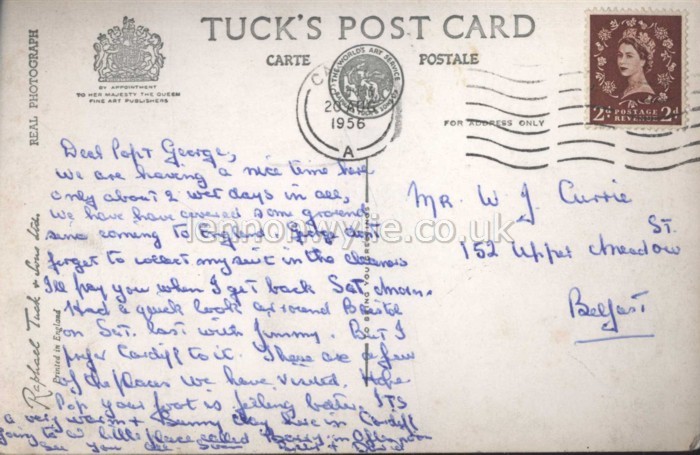 TUCK'S POST CARD
CARTE POSTALE
BY APPOINTMENT
TO HER MAJESTY THE QUEEN
FINE ART PUBLISHERS
REAL PHOTOGRAPH
THE WORLD'S ART SERVICE
20 AUG
1956
A
FOR ADDRESS ONLY
2D POSTAGE REVENUE 2D
Dear Pop & George,
We are having a nice time here
only about 2 wet days in all,
We have have covered some ground
since coming to England. George don't
forget to collect my suit in the cleaners
I'll pay you when I get back Sat. morn.
Had a quick look around Bristol
on Sat. last with Jimmy. But I
prefer Cardiff to it. These are a few
of the places we have visited. Hope
Pop your foot is feeling better. ITS
a very warm & Sunny day here in Cardiff
going to a little place called Barry in afternoon
See you all soon
Mr W J Currie
152 Upper Meadow St.
Belfast
Raphael Tuck & Sons Ltd.
Printed in England
lennonwylie.co.uk